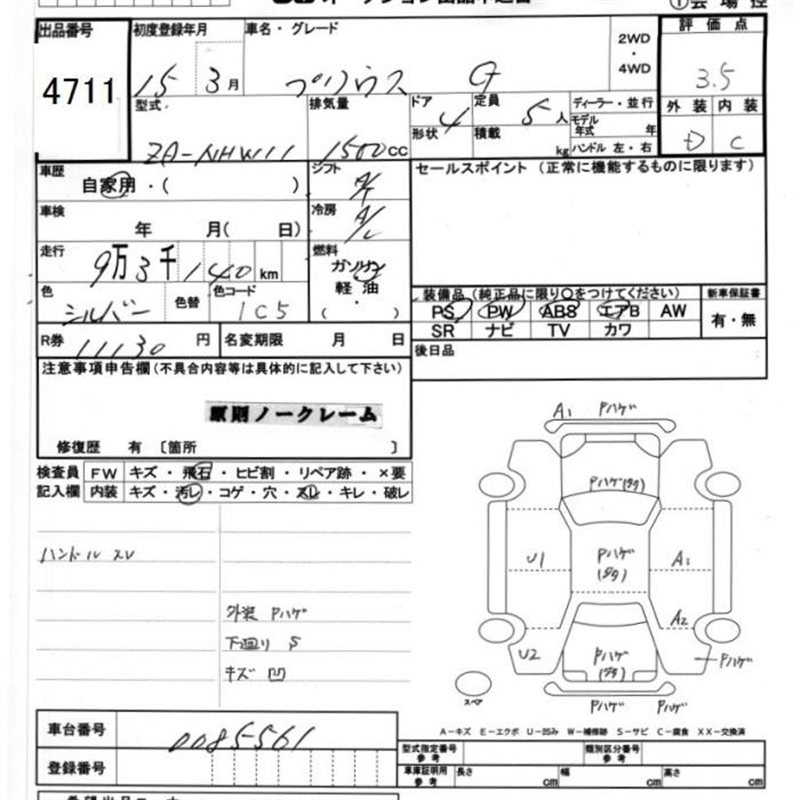 ①会場控
出品番号 4711
初度登録年月 15 3月
車名・グレード プリウス G
2WD・4WD
評価点 3.5
型式 ZA-NHW11
排気量 1500cc
ドア形状 4
定員 5人
積載 kg
ディーラー・並行
モデル年式 年
ハンドル 左・右
外装 D
内装 C
車歴 自家用・( )
シフト A/T
セールスポイント (正常に機能するものに限ります)
車検 年 月( 日)
冷房 A/C
走行 9万3千140km
燃料 ガソリン 軽油 ( )
色 シルバー
色替
色コード 1C5
装備品 (純正品に限り○をつけてください)
新車保証書 有・無
PS PW ABS エアB AW
SR ナビ TV カワ
R券 11130円
名変期限 月 日
後日品
注意事項申告欄(不具合内容等は具体的に記入して下さい)
原則ノークレーム
修復歴 有 〔箇所 〕
検査員記入欄
FW キズ・飛石・ヒビ割・リペア跡・×要
内装 キズ・汚レ・コゲ・穴・スレ・キレ・破レ
ハンドルスレ
外装 Pハゲ
下廻り S
キズ 凹
A1 Pハゲ
Pハゲ(タタ)
U1 Pハゲ(タタ) A1
A2
U2 Pハゲ(タタ) Pハゲ
スペア
Pハゲ Pハゲ
A-キズ E-エクボ U-凹み W-補修跡 S-サビ C-腐食 XX-交換済
車台番号 0085561
登録番号
型式指定番号 参考
類別区分番号 参考
車庫証明用 参考 長さ cm 幅 cm 高さ cm